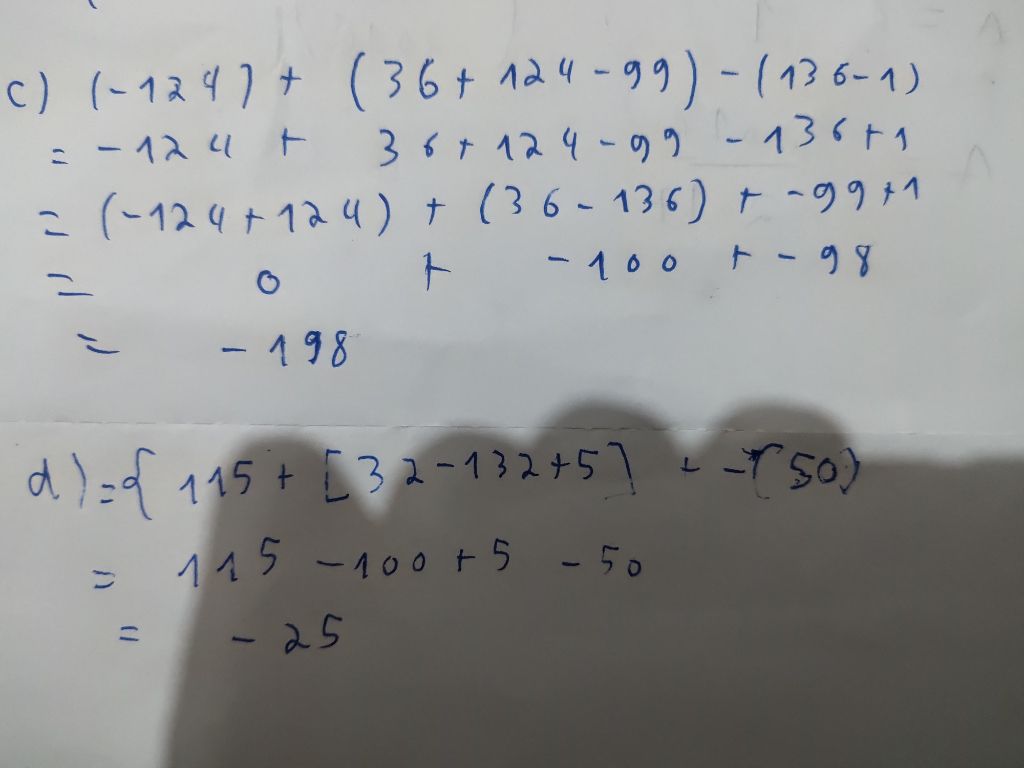 c) (-124) + (36+124-99) - (136-1)
= -124 + 36+124-99 -136+1
= (-124+124) + (36-136) + -99+1
= 0 + -100 + -98
= -198
d) = { 115 + [32-132+5] + -(50)
= 115 -100+5 -50
= -25